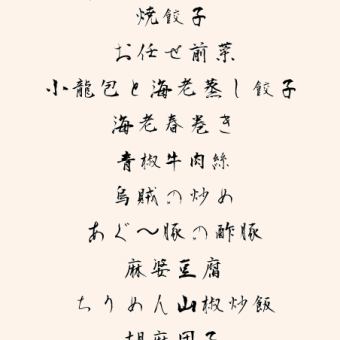 焼餃子
お任せ前菜
小龍包と海老蒸し餃子
海老春巻き
青椒牛肉絲
烏賊の炒め
あぐ〜豚の酢豚
麻婆豆腐
ちりめん山椒炒飯
胡麻団子